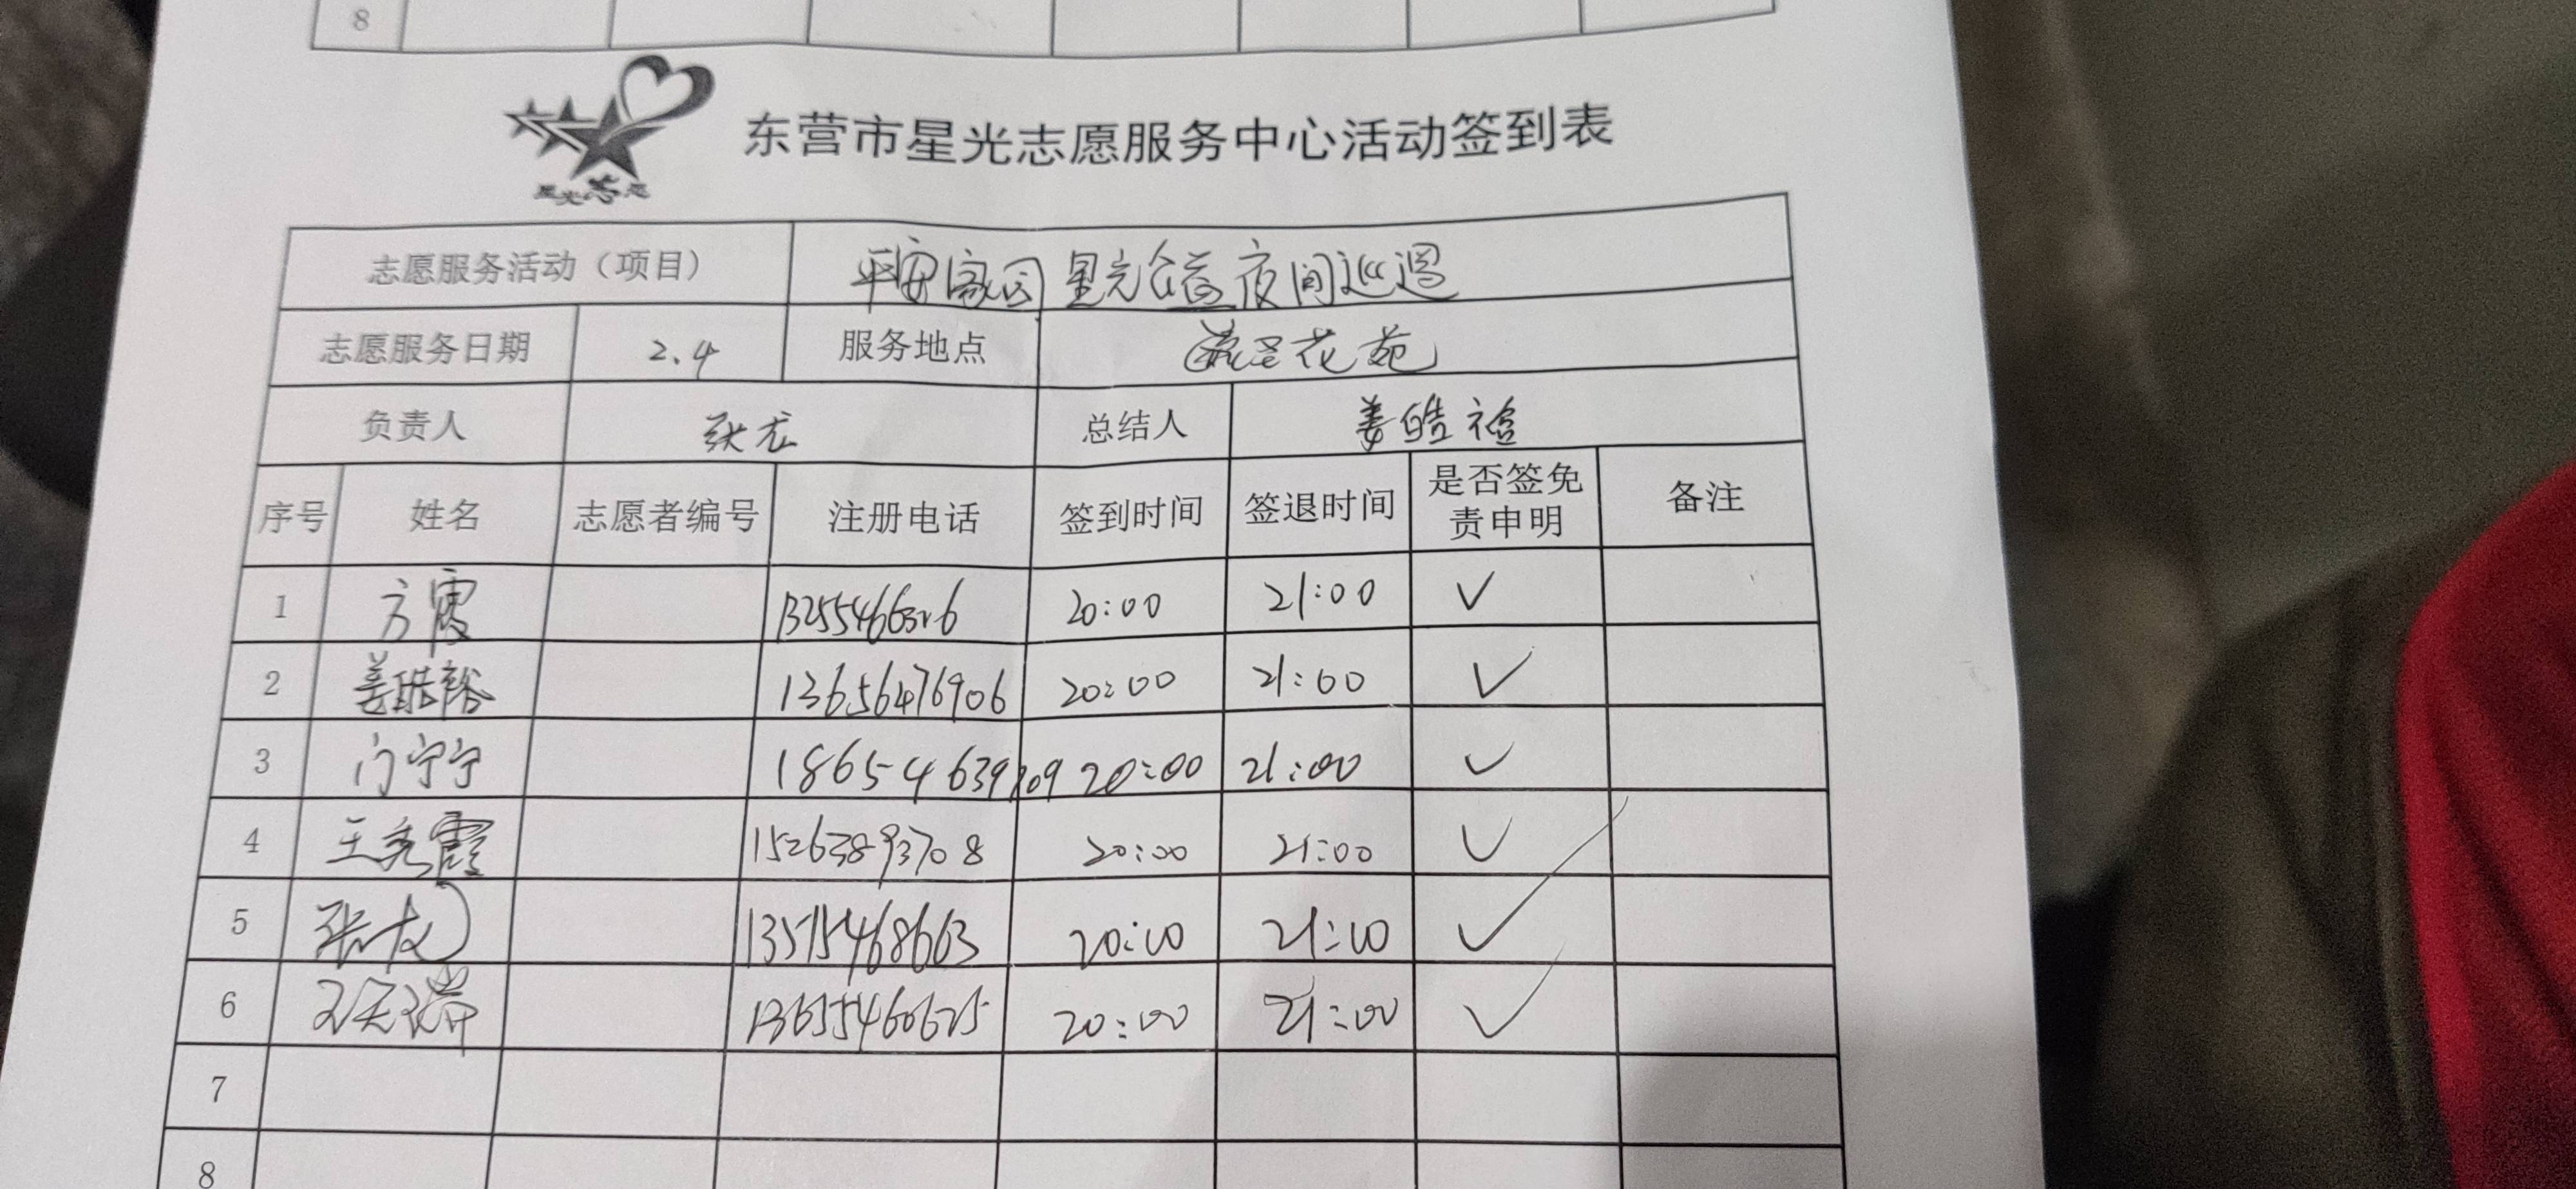 8
星光志愿
东营市星光志愿服务中心活动签到表
志愿服务活动（项目） 平安家园星光公益夜间巡逻
志愿服务日期 2.4 服务地点 花苑
负责人 张龙 总结人 姜皓
序号 姓名 志愿者编号 注册电话 签到时间 签退时间 是否签免责申明 备注
1 方霞 20:00 21:00 ✓
2 姜皓裕 13656476906 20:00 21:00 ✓
3 门宁宁 18654639209 20:00 21:00 ✓
4 王秀霞 15263893708 20:00 21:00 ✓
5 张龙 13515468663 20:00 21:00 ✓
6 王天瑞 13655460625 20:00 21:00 ✓
7
8